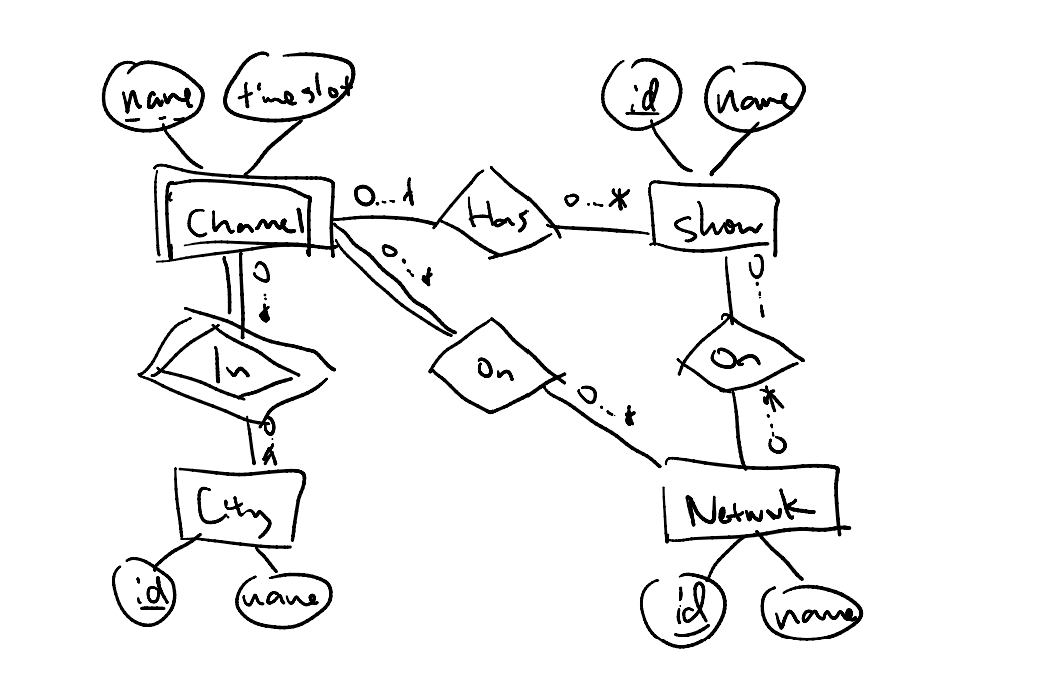 name
timeslot
id
name
Channel
0...1
Has
0...*
Show
0...*
0...*
0...1
In
On
On
0...*
*...0
City
Network
id
name
id
name